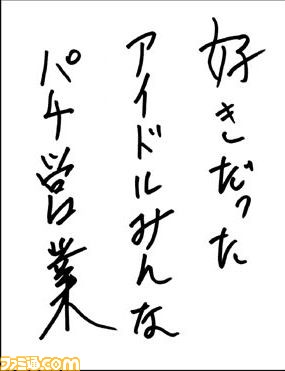 好きだった
アイドルみんな
パチ営業
ファミ通.com